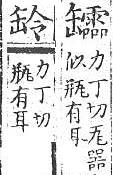 䍅
力丁切瓦器
似瓶有耳
力丁切
瓶有耳